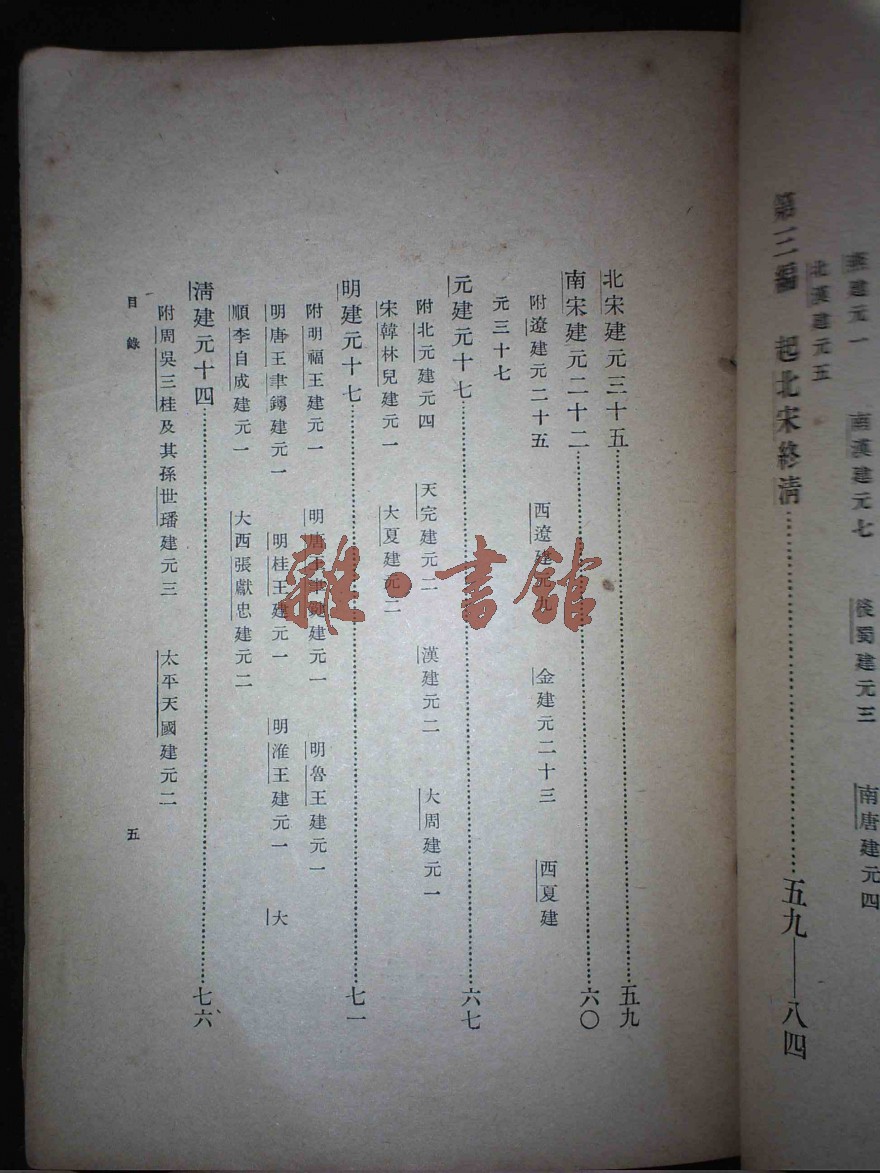 建元一　南漢建元七　後蜀建元三　南唐建元四
北漢建元五
第三編　起北宋終清……五九——八四
北宋建元三十五……五九
南宋建元二十二……六〇
附遼建元二十五　西遼建元九　金建元二十三　西夏建
元三十七
元建元十七……六七
附北元建元四　天完建元二　漢建元二　大周建元一
宋韓林兒建元一　大夏建元二
明建元十七……七一
附明福王建元一　明唐王聿鍵建元一　明魯王建元一
明唐王聿𨮁建元一　明桂王建元一　明淮王建元一　大
順李自成建元一　大西張獻忠建元二
清建元十四……七六
附周吳三桂及其孫世璠建元三　太平天國建元二
目錄
五
雜·書館